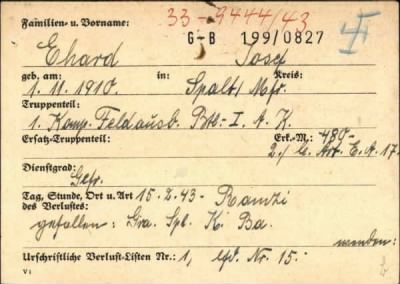 Familien- u. Vorname:
33-9444/43
G-B 199/0827
Ehard Josef
geb. am: in: Kreis:
1. 11. 1910. Spalt, Mfr.
Truppenteil:
1. Komp. Feldausb. Btl. I. A. K.
Ersatz-Truppenteil: Erk.-M.: 480-
2./ E. A. 17.
Dienstgrad:
Gefr.
Tag, Stunde, Ort u. Art 15. 2. 43- Ramzi
des Verlustes:
gefallen: Gra. Spl. K. Ba.
wenden:
Urschriftliche Verlust-Listen Nr.: 1, lfd. Nr. 15.
V 1